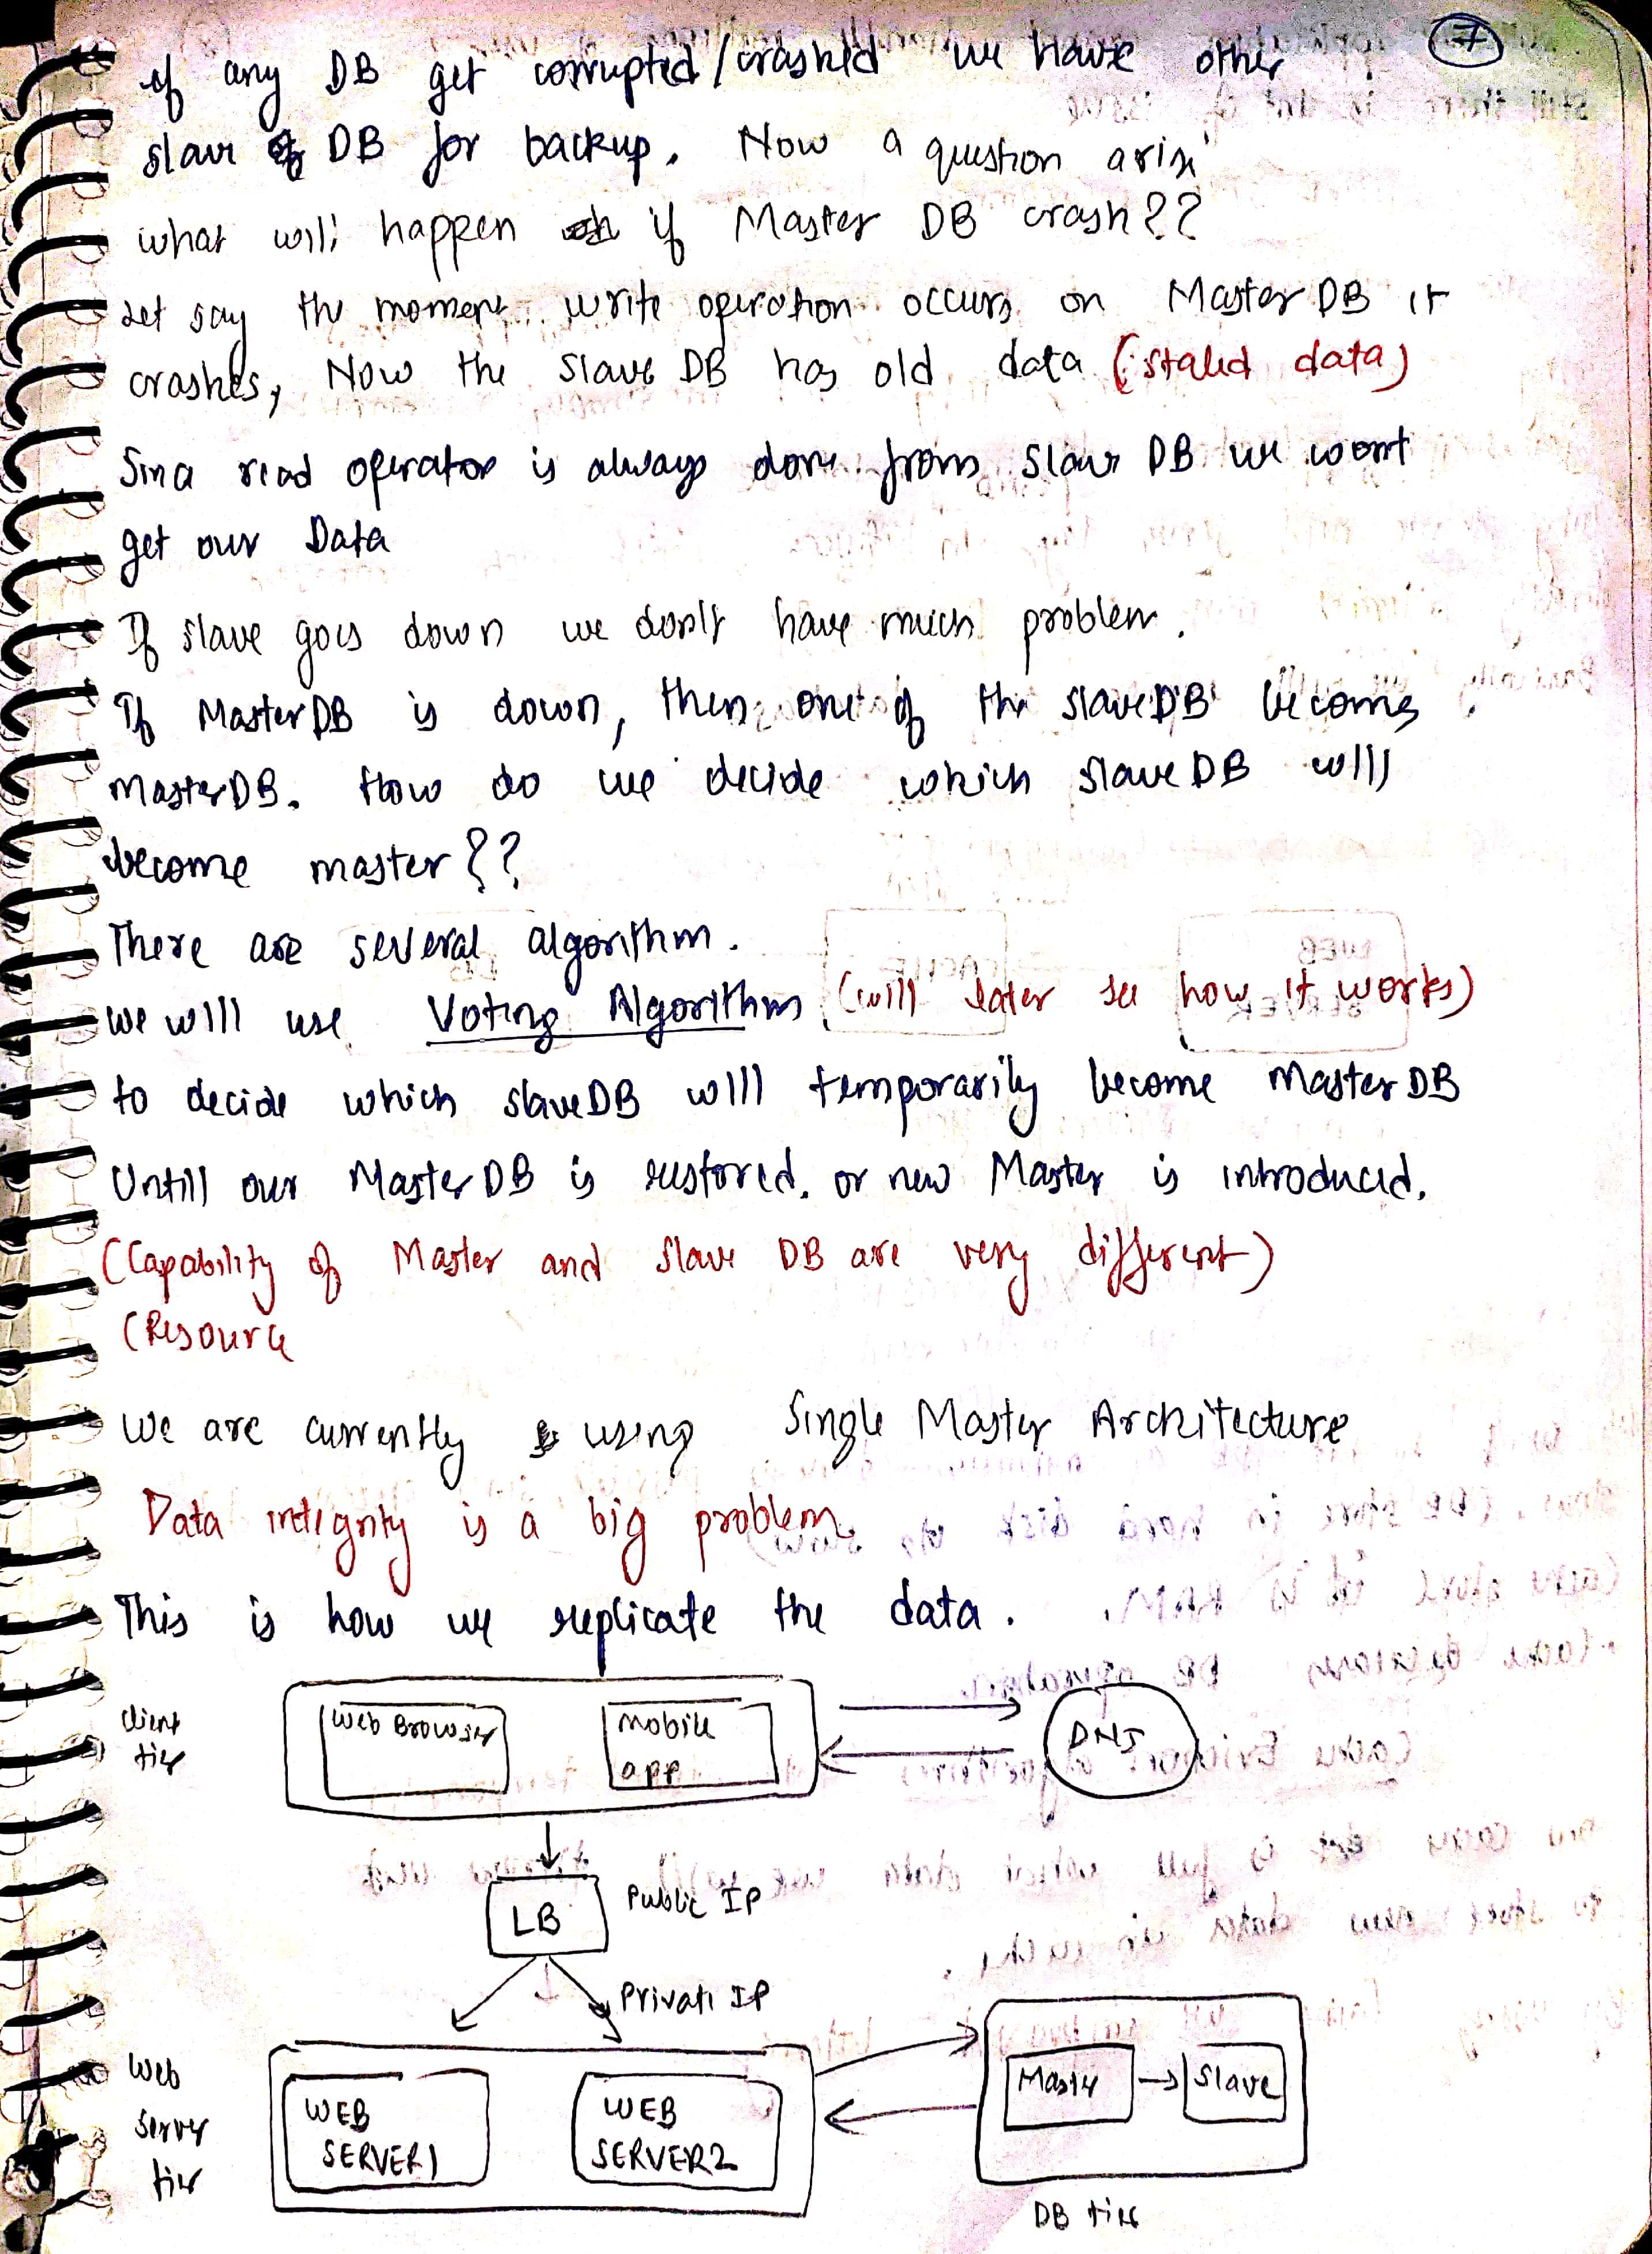 7
if any DB get corrupted/crashed we have other
slave DB for backup. Now a question arise
what will happen if Master DB crash??
Let say the moment write operation occurs on Master DB it
crashes, Now the Slave DB has old data (staled data)
Since read operation is always done from slave DB we wont
get our Data
If slave goes down we don't have much problem.
If MasterDB is down, then one of the slaveDB becomes
MasterDB. How do we decide which slaveDB will
become master??
There are several algorithm.
we will use Voting Algorithm (will later see how it works)
to decide which slaveDB will temporarily become MasterDB
Untill our MasterDB is restored. or new Master is introduced.
(Capability of Master and Slave DB are very different)
(Resource
We are currently using Single Master Architecture
Data integrity is a big problem.
This is how we replicate the data.
Client
tier
Web Browser
Mobile
app
DNS
LB
Public IP
Private IP
Web
Server
tier
WEB
SERVER1
WEB
SERVER2
Master
Slave
DB tier